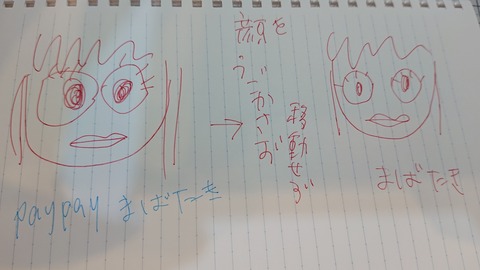 paypay まばたき
顔を
うごかさず
移動せず
まばたき